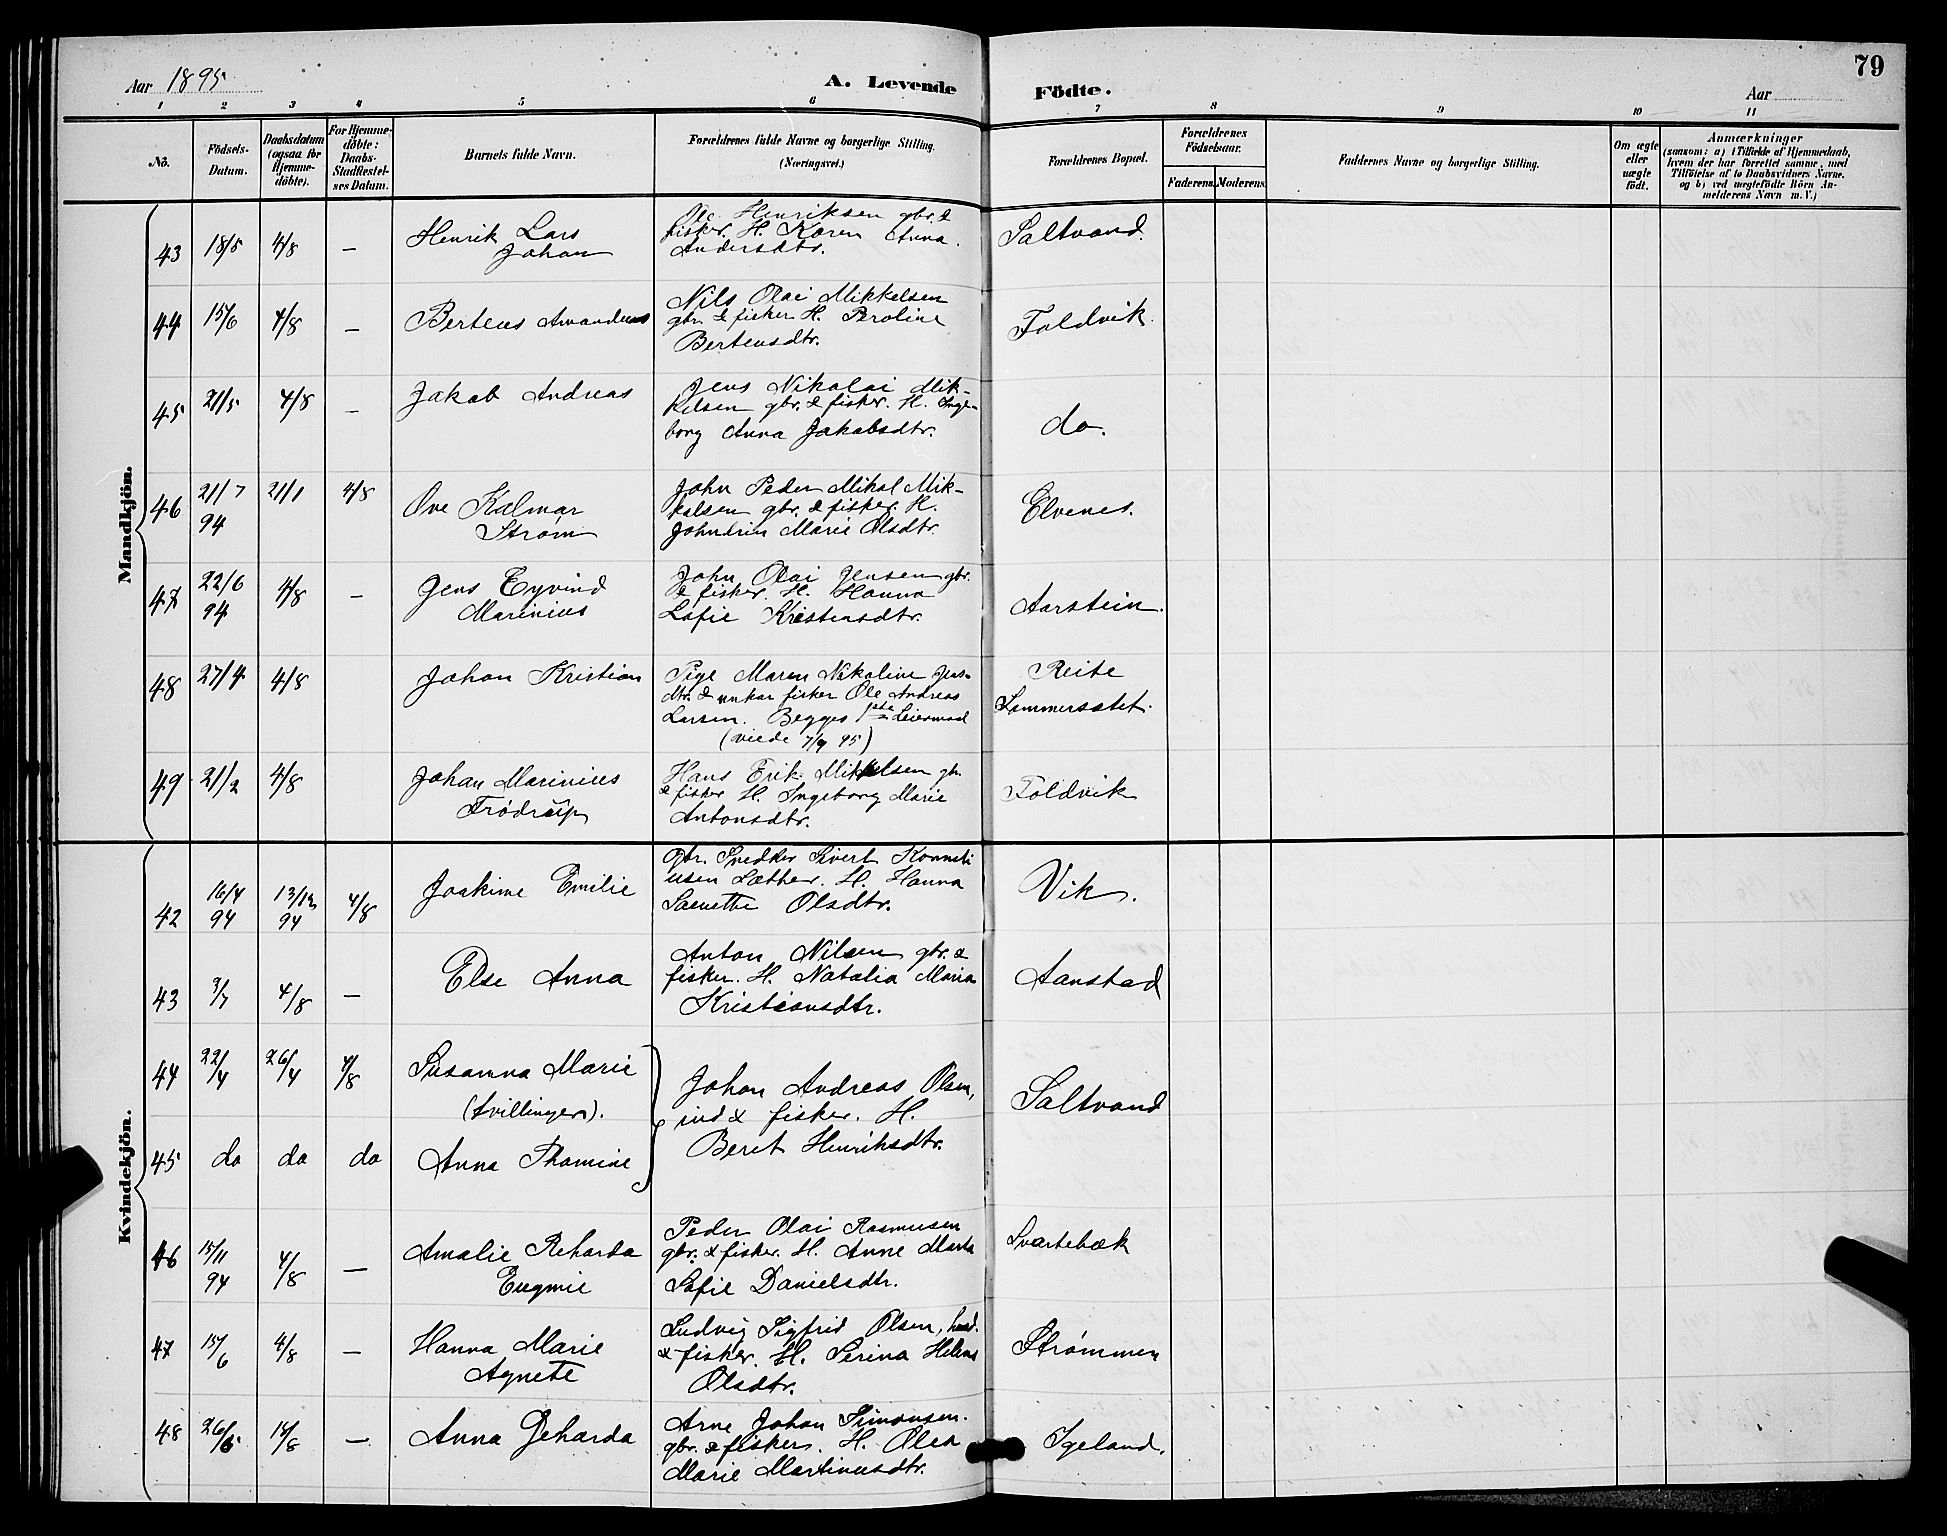 79
Aar 1895
A. Levende Födte.
Aar
1 2 3 4 5 6 7 8 9 10 11
No.
Födsels-
Datum.
Daabsdatum
(ogsaa for
Hjemme-
döbte).
For Hjemme-
döbte:
Daabs-
Stadfæstel-
ses Datum.
Barnets fulde Navn.
Forældrenes fulde Navne og borgerlige Stilling.
(Næringsvei.)
Forældrenes Bopæl.
Forældrenes
Födselsaar.
Faderens. Moderens.
Faddernes Navne og borgerlige Stilling.
Om ægte
eller
uægte
født.
Anmærkninger
(saasom: a) i Tilfælde af Hjemmedaab,
hvem der har forrettet samme, med
Tilföielse af to Daabsvidners Navne.
og b) ved uægtefödte Börn An-
melderens Navn m. V.)
Mandkjön.
43 18/5 4/8 —
Henrik Lars
Johan
Ole Henriksen gbr. &
fisker. H. Karen Anna
Andersdtr.
Saltvand.
44 15/6 4/8 —
Berteus Amandeus
Nils Olai Mikkelsen
gbr. & fisker H. Peroline
Bertensdtr.
Foldvik.
45 21/5 4/8 —
Jakob Andreas
Jens Nikolai Mik-
kelsen gbr. & fisker. H. Inge-
borg Anna Jakobsdtr.
do.
46 21/7 94 21/1 4/8
Ove Kalmar
Strøm
John Peder Mikal Mik-
kelsen gbr. & fisker. H.
Marie Olsdtr.
Elvenes.
47 22/6 94 4/8 —
Jens Eyvind
Marinius
John Olai Jensen gbr.
& fisker. H. Hanna
Sofie Kristensdtr.
Aarstein.
48 27/4 4/8
Johan Kristian
Pige Maren Nikoline Jens-
dtr. & unkar fisker Ole Andreas
Larsen. Begges 1ste Leiermaal
(viede 7/9 95)
Reite
49 21/2 4/8
Johan Marinius
Frödrup
Hans Erik Mikkelsen gbr.
& fisker H. Ingeborg Marie
Antonsdtr.
Foldvik
Kvindekjön.
42 16/4 94 13/12 94 4/8
Joakime Emilie
Gbr. Snedker Sivert Korneli
usen Sæther. H. Hanna
Olsdtr.
Vik.
43 3/7 4/8 —
Else Anna
Anton Nilsen gbr. &
fisker. H. Natalia Maria
Kristiansdtr.
Aanstad
44 22/4 26/4 4/8
Susanna Marie
(tvillinger).
Johan Andreas Olsen,
ind & fisker. H.
Berit Henriksdtr.
Saltvand
45 do do do
Anna Thomine
46 15/11 94 4/8 —
Amalie Reharda
Eugenie
Peder Olai Rasmusen
gbr. & fisker. H. Anne Marta
Sofie Danielsdtr.
Svartebæk
47 15/6 4/8 —
Hanna Marie
Agnete
Ludvig Sigfrid Olsen, husd.
& fisker. H. Serina Helene
Olsdtr.
Strømmen
48 26/6 15/8 —
Anna Geharda
Arne Johan Simonsen.
gbr. & fisker. H. Olea
Marie Martinusdtr.
Igeland.